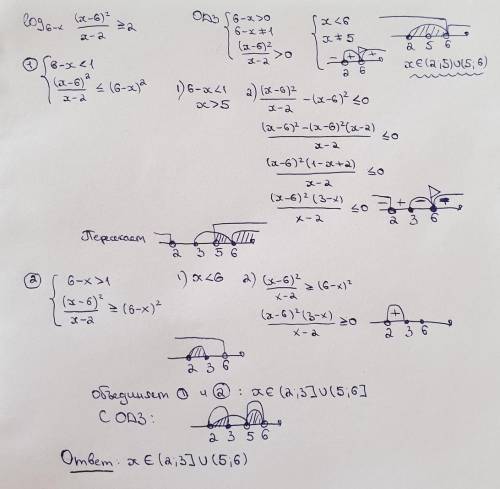 log₆₋ₓ (x-6)²/(x-2) ≥ 2
ОДЗ { 6-x>0
6-x≠1
(x-6)²/(x-2) > 0
{ x<6
x≠5
+ +
2 6
2 5 6
x∈(2;5)∪(5;6)
① { 6-x<1
(x-6)²/(x-2) ≤ (6-x)²
1) 6-x<1
x>5
2) (x-6)²/(x-2) - (x-6)² ≤ 0
((x-6)²-(x-6)²(x-2))/(x-2) ≤ 0
(x-6)²(1-x+2)/(x-2) ≤ 0
(x-6)²(3-x)/(x-2) ≤ 0
- + - -
2 3 6
Пересекаем
2 3 5 6
② { 6-x>1
(x-6)²/(x-2) ≥ (6-x)²
1) x<6
2) (x-6)²/(x-2) ≥ (6-x)²
(x-6)²(3-x)/(x-2) ≥ 0
+
2 3 6
2 3 6
Объединяем ① и ② : x∈(2;3]∪(5;6]
С ОДЗ:
2 3 5 6
Ответ: x∈(2;3]∪(5;6)